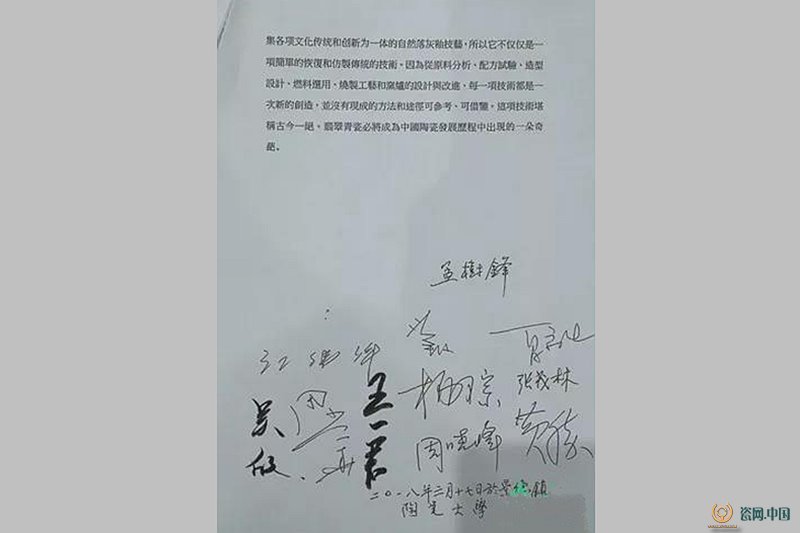 集各项文化传统和创新为一体的自然落灰釉技藝，所以它不仅仅是一
項簡單的恢復和仿製傳統的技術。因為從原料分析、配方試驗、造型
設計、燃料選用、燒製工藝和窯爐的設計與改進，每一項技術都是一
次新的創造，並沒有現成的方法和途徑可參考、可借鑒，這項技術堪
稱古今一絕。翡翠青瓷必將成為中國陶瓷發展歷程中出現的一朵奇
葩。
孟樹鋒
张茂林
王一君
周曉峰
二〇一八年三月十七日於景德鎮
陶瓷大學
瓷网.中国